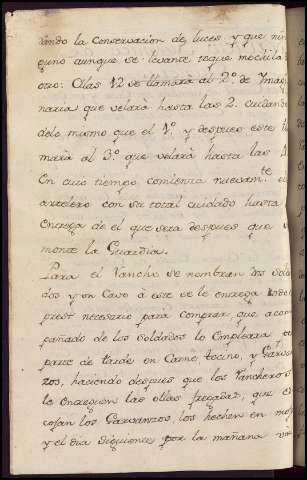 dando la Conservacion de luces y que nin
guno aunque se levante toque mochila
otro. Alas 12 se llamará al 2º. de Ymag
naria que velará hasta las 2. cuidando
delo mismo que el 1º. y despues este lla
mará al 3º. que velará hasta las
En cuio tiempo comienza nuevamte. el
artelero con su total cuidado hasta
Entrega de el que sera despues que
monte la Guardia.
Para el Rancho se nombran dos Solda
dos y un Cavo á este se le entrega todo
prest necesario para comprar, que acom
pañado de los Soldados lo Empleara
parte de tarde en Carne, tocino, y Garvan
zos, haciendo despues que los Rancheros
le Entreguen las ollas fregadas, que
cojan los Garvanzos, los hechen en
y el dia Siguiente por la mañana